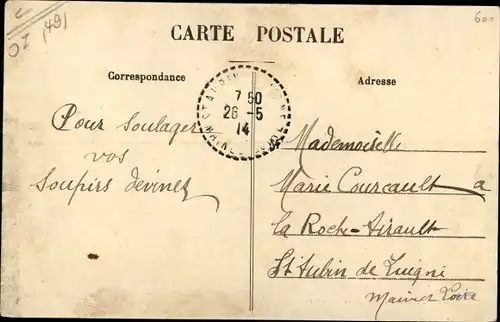 (49)
600
CARTE POSTALE
Correspondance
Adresse
7 50
26 -5
14
Pour soulager
vos
soupirs devinez
Mademoiselle
Marie Courcault a
la Roche-Airault
St Aubin de Luigné
Maine et Loire